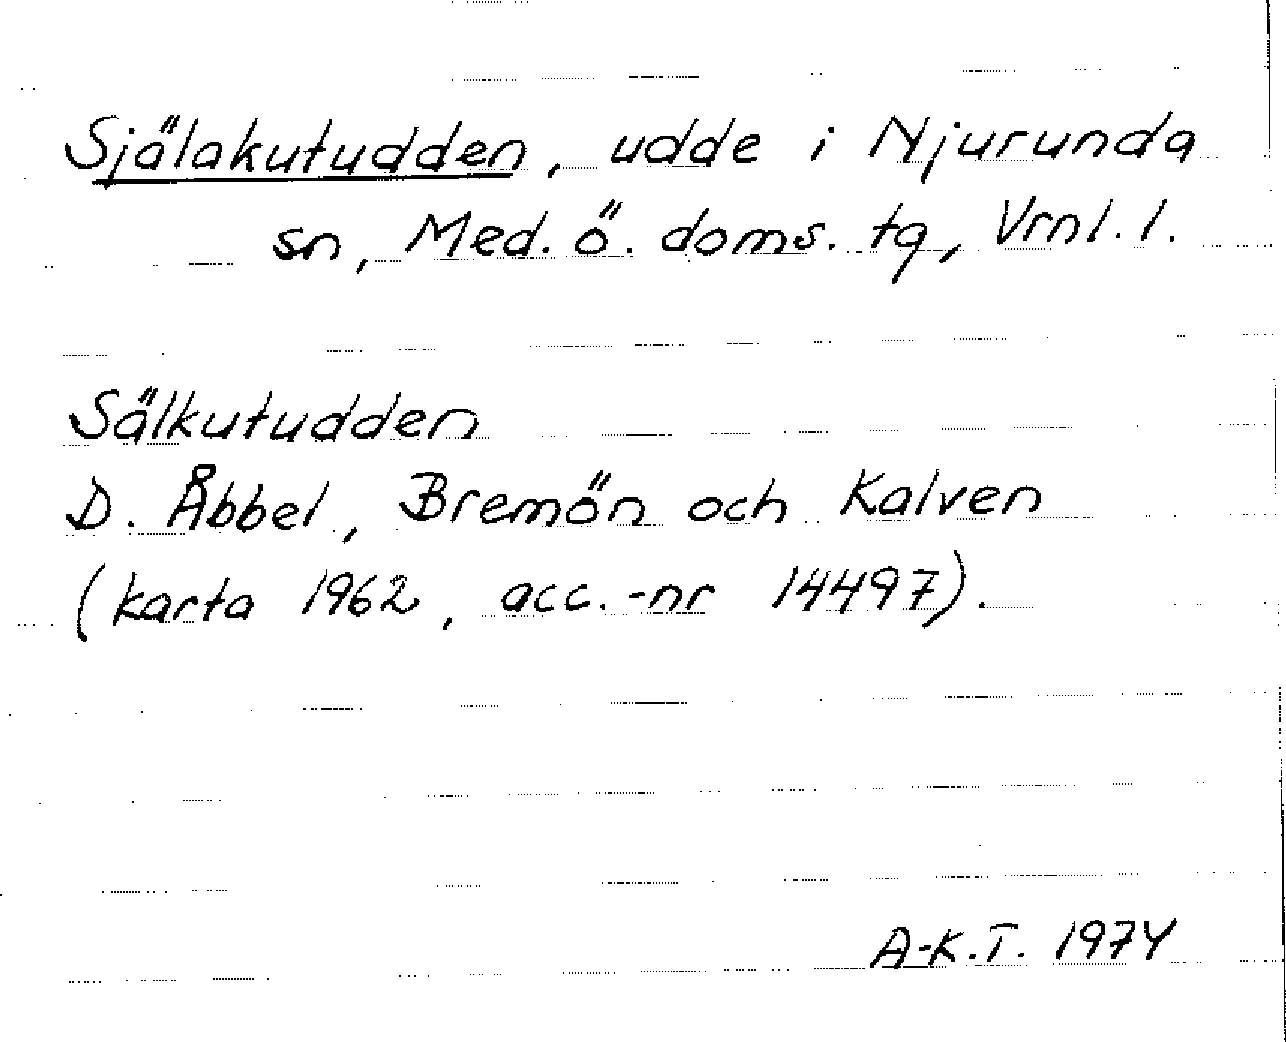 Själakutudden, udde i Njurunda
sn, Med. ö. doms. tg, Vrnl. l.
Sälkutudden
D. Åbbel, Bremön och Kalven
(karta 1962, acc.-nr 14497).
A-K.T. 1974